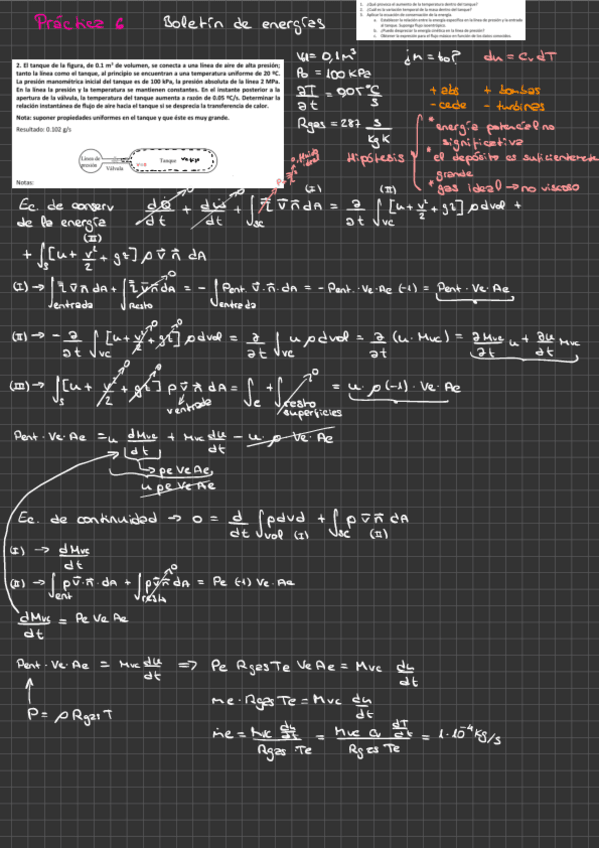 Práctica 6 Boletín de energías
1. ¿Qué provoca el aumento de la temperatura dentro del tanque?
2. ¿Cuál es la variación temporal de la masa dentro del tanque?
3. Aplica la ecuación de conservación de la energía.
a. Establecer la relación entre la energía específica en la línea de presión y la entrada al tanque. Suponga flujo isoentrópico.
b. ¿Puedo despreciar la energía cinética en la línea de presión?
c. Obtener la expresión para el flujo másico en función de los datos conocidos.
2. El tanque de la figura, de 0.1 m³ de volumen, se conecta a una línea de aire de alta presión;
tanto la línea como el tanque, al principio se encuentran a una temperatura uniforme de 20 ºC.
La presión manométrica inicial del tanque es de 100 kPa, la presión absoluta de la línea 2 MPa.
En la línea la presión y la temperatura se mantienen constantes. En el instante posterior a la
apertura de la válvula, la temperatura del tanque aumenta a razón de 0.05 ºC/s. Determinar la
relación instantánea de flujo de aire hacia el tanque si se desprecia la transferencia de calor.
Nota: suponer propiedades uniformes en el tanque y que éste es muy grande.
Resultado: 0.102 g/s
Línea de presión
Válvula
Tanque
Notas:
V1 = 0,1 m³ ¿ṁ = to? du = Cv dT
P0 = 100 kPa
∂T/∂t = 0,05 °C/s
Rgas = 287 J/kg K
+ abs + bombas
- cede - turbinas
Hipótesis
* energía potencial no
significativa
* el depósito es suficientemente
grande
* gas ideal → no viscoso
Ec. de conserv
de la energía
dQ/dt + dω/dt + ∫ τ v̄ n̄ dA = ∂/∂t ∫vc [u + v²/2 + gz] ρ dvol +
(I) (II)
+ ∫s [u + v²/2 + gz] ρ v̄ n̄ dA
(I) → ∫entrada τ v̄ n̄ dA + ∫Resto τ v̄ n̄ dA = - ∫entrada Pent. v̄. n̄. dA = - Pent. Ve. Ae (-1) = Pent. Ve. Ae
(II) → - ∂/∂t ∫vc [u + v²/2 + gz] ρ dvol = ∂/∂t ∫vc u ρ dvol = ∂/∂t (u. Mvc) = ∂Mvc/∂t u + ∂u/∂t Mvc
(III) → ∫s [u + v²/2 + gz] ρ v̄ n̄ dA = ∫e + ∫resto superficies = u. ρ (-1). Ve. Ae
ventrada
Pent. Ve. Ae = u dMvc/dt + Mvc du/dt - u. ρ Ve. Ae
→ ρe Ve Ae
u ρe Ve Ae
Ec. de continuidad → 0 = d/dt ∫vol ρ dvol + ∫sc ρ v̄ n̄ dA
(I) (II)
(I) → dMvc/dt
(II) → ∫ent ρ v̄. n̄. dA + ∫resto ρ v̄ n̄ dA = ρe (-1) Ve. Ae
dMvc/dt = ρe Ve Ae
Pent. Ve. Ae = Mvc du/dt ⇒ ρe Rgas Te Ve Ae = Mvc du/dt
ṁe. Rgas Te = Mvc du/dt
P = ρ Rgas T
ṁe = Mvc du/dt / Rgas Te = Mvc Cv dT/dt / Rgas Te = 1.10⁻⁴ kg/s